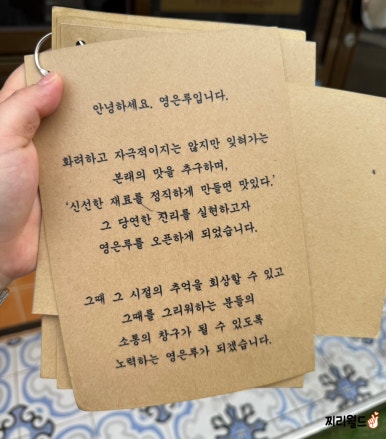 안녕하세요. 영은루입니다.
화려하고 자극적이지는 않지만 잊혀가는
본래의 맛을 추구하며,
'신선한 재료를 정직하게 만들면 맛있다.'
그 당연한 진리를 실현하고자
영은루를 오픈하게 되었습니다.
그때 그 시절의 추억을 회상할 수 있고
그때를 그리워하는 분들의
소통의 창구가 될 수 있도록
노력하는 영은루가 되겠습니다.
찌리월드